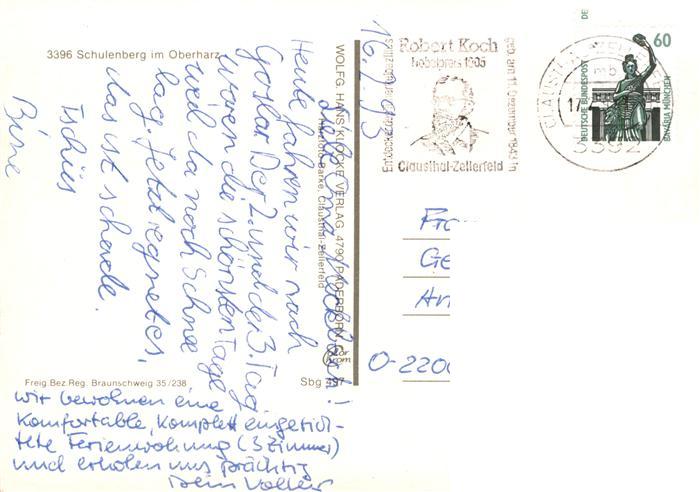 3396 Schulenberg im Oberharz
16.2.93
Liebe Oma Mecklburg!
Heute fahren wir nach
Goslar. Der 2. und der 3. Tag
waren die schönsten Tage
weil da noch Schnee
lag. Jetzt regnet es,
das ist schade.
Tschüs
Bine
wir bewohnen eine
komfortable, komplett eingerich-
tete Ferienwohnung (3 Zimmer)
und erholen uns prächtig
Dein Volker
WOLFG. HANS KLOCKE VERLAG, 4790 PADERBORN
Harzfoto-Barke, Clausthal-Zellerfeld
color
chrom
Freig.Bez.Reg. Braunschweig 35/238
Sbg 497
Robert Koch
Nobelpreis 1905
geb. am 11. Dezember 1843 in
Clausthal-Zellerfeld
CLAUSTHAL-ZELLERFELD
mb
17
3392
DE
60
DEUTSCHE BUNDESPOST
BAVARIA MÜNCHEN
Fra
Ge
An
O-2200